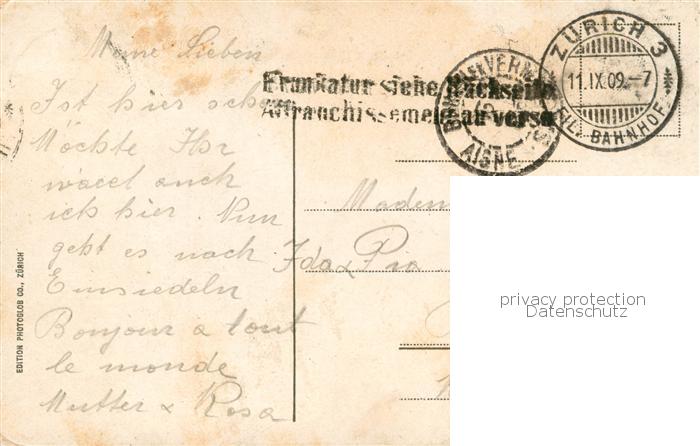 Meine Lieben
Ist hier schön
Möchte Ihr
wäret auch
ich hier. Nun
geht es nach
Einsiedeln
Bonjour a tout
le monde
Mutter & Rosa
EDITION PHOTOGLOB CO., ZÜRICH
Frankatur siehe Rückseite
Affranchissement au verso
AIGNE
ZÜRICH 3
11.IX.09.-7
FIL. BAHNHOF
Madem
Ida & Pia
privacy protection
Datenschutz